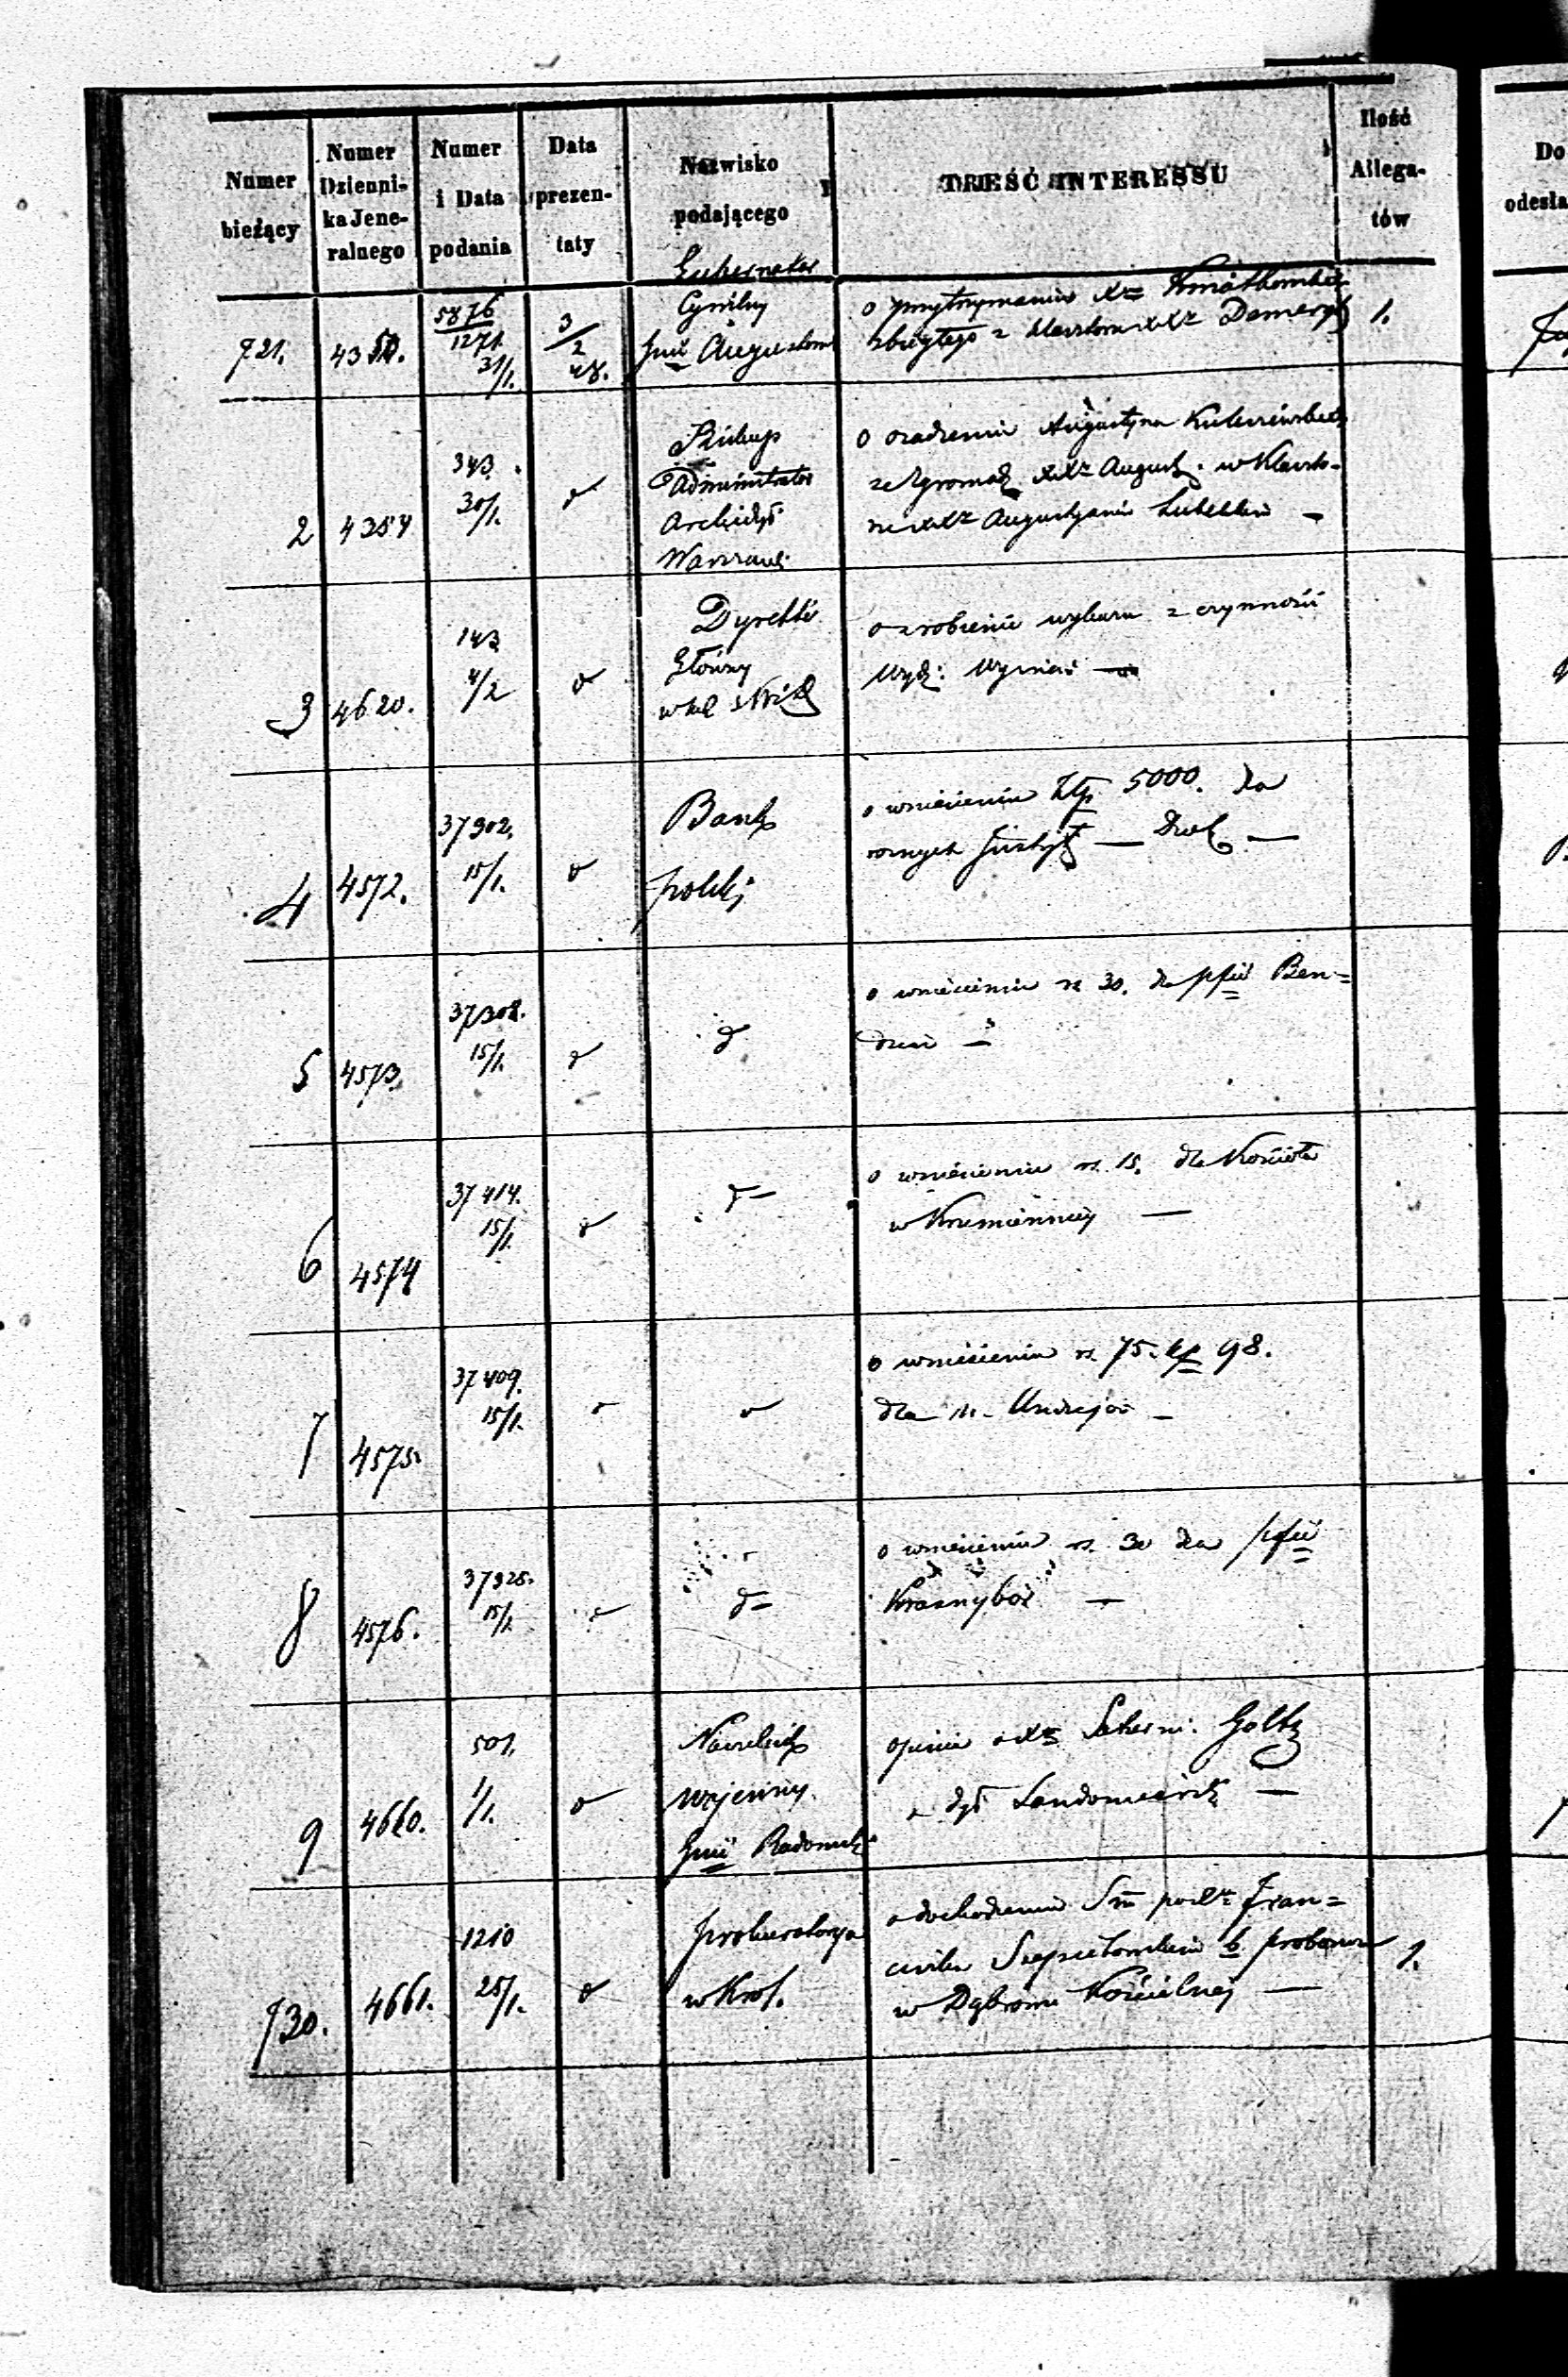 Numer bieżący
Numer Dzienni-
ka Jene-
ralnego
Numer i Data podania
Data prezen-
taty
Nazwisko podającego
TREŚĆ INTERESSU
Ilość Allega-
tów
Do
odesła
721.
43
5876
1271.
31/1.
3/2
48.
Gubernator
Cywilny
Gub Augustow
o przytrzymaniu Xa
zbiegłego z
1.
2
4354
343.
30/1.
d
Biskup
Administrator
Archidyec
Warszaws
o osadzeniu Augustyna
ze Zgromadz XXw August. w Klaszto-
rze XXw Augustyanów Lubelskim —
3
4620.
143
4/2
d
Dyrektor
Główny
o zrobienie wykazu z czynności
Wydz: Wyznań —
4
4572.
37302.
15/1.
d
Bank
polski
o wniesieniu Złp 5000. dla
—
5
4573.
37308.
15/1.
d
d
o wniesieniu rs 30. dla pfii Ben=
dzin —
6
4574
37414.
15/1.
d
d—
o wniesieniu rs. 15. dla Kościoła
w Krzemiennicy —
7
4575.
37409.
15/1.
d
d
o wniesieniu rs. 75. kp 98.
dla m. Andrzejów —
8
4576.
37328.
15/1.
d
d—
o wniesieniu rs. 30 dla pfii
Krasnybór —
9
4660.
501.
1/1.
d
Naczelnik
wojenny
Gub Radomsk
opinia o Xa Goltz
z dyec Sandomierski —
730.
4661.
1210
25/1.
d
prokuratorya
w Król.
o dochodzeniu po Xa Fran=
ciszku b proboszczu
w Dąbrowie Kościelnej —
1.